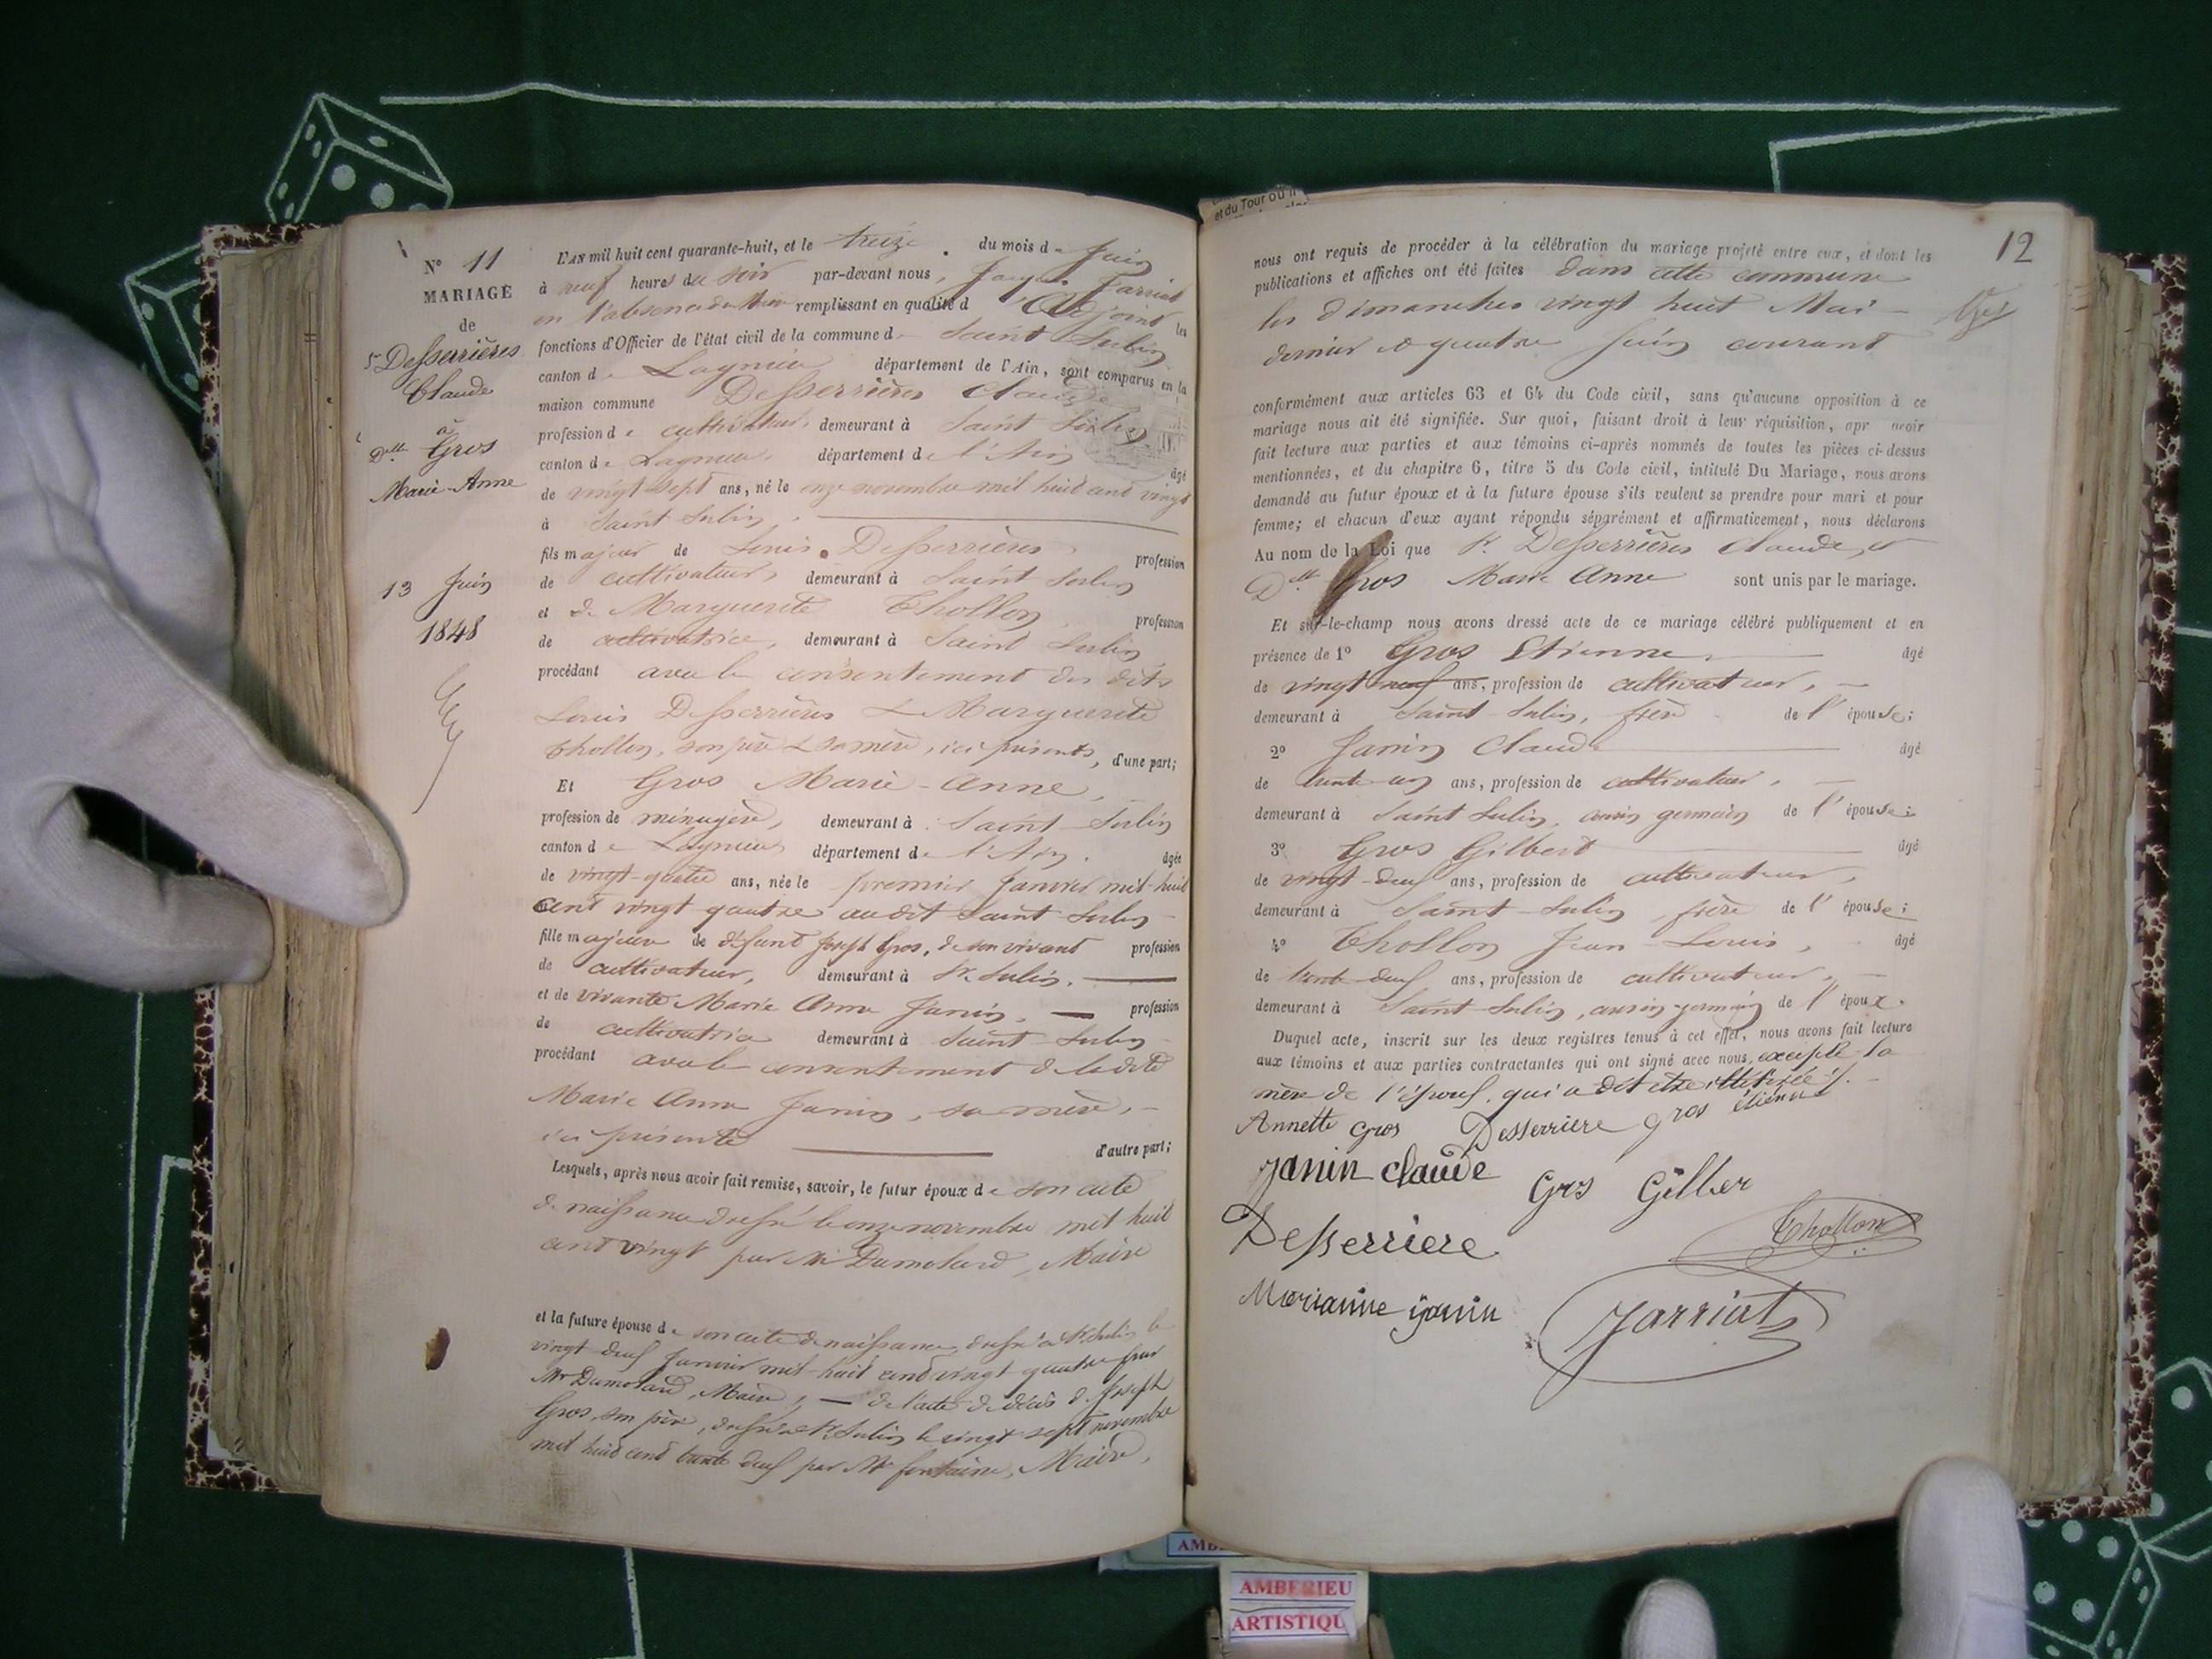 N° 11
MARIAGE
de
Sr Desserrières
Claude
à
Dlle Gros
Marie-Anne
13 Juin
1848
L'AN mil huit cent quarante-huit, et le treize du mois de Juin
à neuf heures du soir par-devant nous, Jarriat
en l'absence du Maire remplissant en qualité d'Adjoint les
fonctions d'Officier de l'état civil de la commune de Saint Sorlin
canton de Lagnieu département de l'Ain, sont comparus en la
maison commune Desserrières Claude
profession de cultivateur, demeurant à Saint Sorlin
canton de Lagnieu, département de l'Ain âgé
de vingt-sept ans, né le onze novembre mil huit cent vingt
à Saint Sorlin.
fils majeur de Louis Desserrières profession
de cultivateur, demeurant à Saint Sorlin
et de Marguerite Thollon, profession
de cultivatrice, demeurant à Saint Sorlin
procédant avec le consentement des dits
Louis Desserrières & Marguerite
Thollon, son père & sa mère, ici présents, d'une part;
Et Gros Marie-Anne,
profession de ménagère, demeurant à Saint-Sorlin
canton de Lagnieu département de l'Ain. âgée
de vingt-quatre ans, née le premier Janvier mil-huit
cent vingt quatre audit Saint Sorlin
fille majeure de défunt Joseph Gros, de son vivant profession
de cultivateur, demeurant à St Sorlin.
et de vivante Marie Anne Janin, profession
de cultivatrice demeurant à Saint-Sorlin
procédant avec le consentement de ladite
Marie Anne Janin, sa mère,
ici présente d'autre part;
Lesquels, après nous avoir fait remise, savoir, le futur époux de son acte
de naissance dressé le onze novembre mil huit
cent vingt par Mr Dumolard, Maire
et la future épouse de son acte de naissance, dressé à St Sorlin le
vingt deux Janvier mil-huit cent vingt quatre par
Mr Dumolard, Maire, — de l'acte de décès de Joseph
Gros, son père, dressé à St Sorlin le vingt sept novembre
mil huit cent trente deux par Mr fontaine, Maire,
12
et du Tour ou
nous ont requis de procéder à la célébration du mariage projeté entre eux, et dont les
publications et affiches ont été faites dans cette commune
les dimanches vingt huit Mai
dernier et quatre Juin courant
conformément aux articles 63 et 64 du Code civil, sans qu'aucune opposition à ce
mariage nous ait été signifiée. Sur quoi, faisant droit à leur réquisition, apr avoir
fait lecture aux parties et aux témoins ci-après nommés de toutes les pièces ci-dessus
mentionnées, et du chapitre 6, titre 5 du Code civil, intitulé Du Mariage, nous avons
demandé au futur époux et à la future épouse s'ils veulent se prendre pour mari et pour
femme; et chacun d'eux ayant répondu séparément et affirmativement, nous déclarons
Au nom de la Loi que Sr Desserrières Claude, et
Dlle Gros Marie Anne sont unis par le mariage.
Et sur-le-champ nous avons dressé acte de ce mariage célébré publiquement et en
présence de 1° Gros Etienne, âgé
de vingt neuf ans, profession de cultivateur,
demeurant à Saint-Sorlin, frère de l'épouse;
2° Janin Claude âgé
de trente un ans, profession de cultivateur,
demeurant à Saint Sorlin, cousin germain de l'épouse;
3° Gros Gilbert âgé
de vingt-deux ans, profession de cultivateur,
demeurant à Saint-Sorlin, frère de l'épouse;
4° Thollon Jean-Louis, âgé
de trente-deux ans, profession de cultivateur,
demeurant à Saint-Sorlin, cousin germain de l'époux.
Duquel acte, inscrit sur les deux registres tenus à cet effet, nous avons fait lecture
aux témoins et aux parties contractantes qui ont signé avec nous, excepté la
mère de l'époux, qui a dit être illétirée.
Annette Gros Desserriere gros étienne
Janin claude Gros Gilber
Desserriere Thollon
Marianne janin Jarriat
AMBERIEU
ARTISTIQU